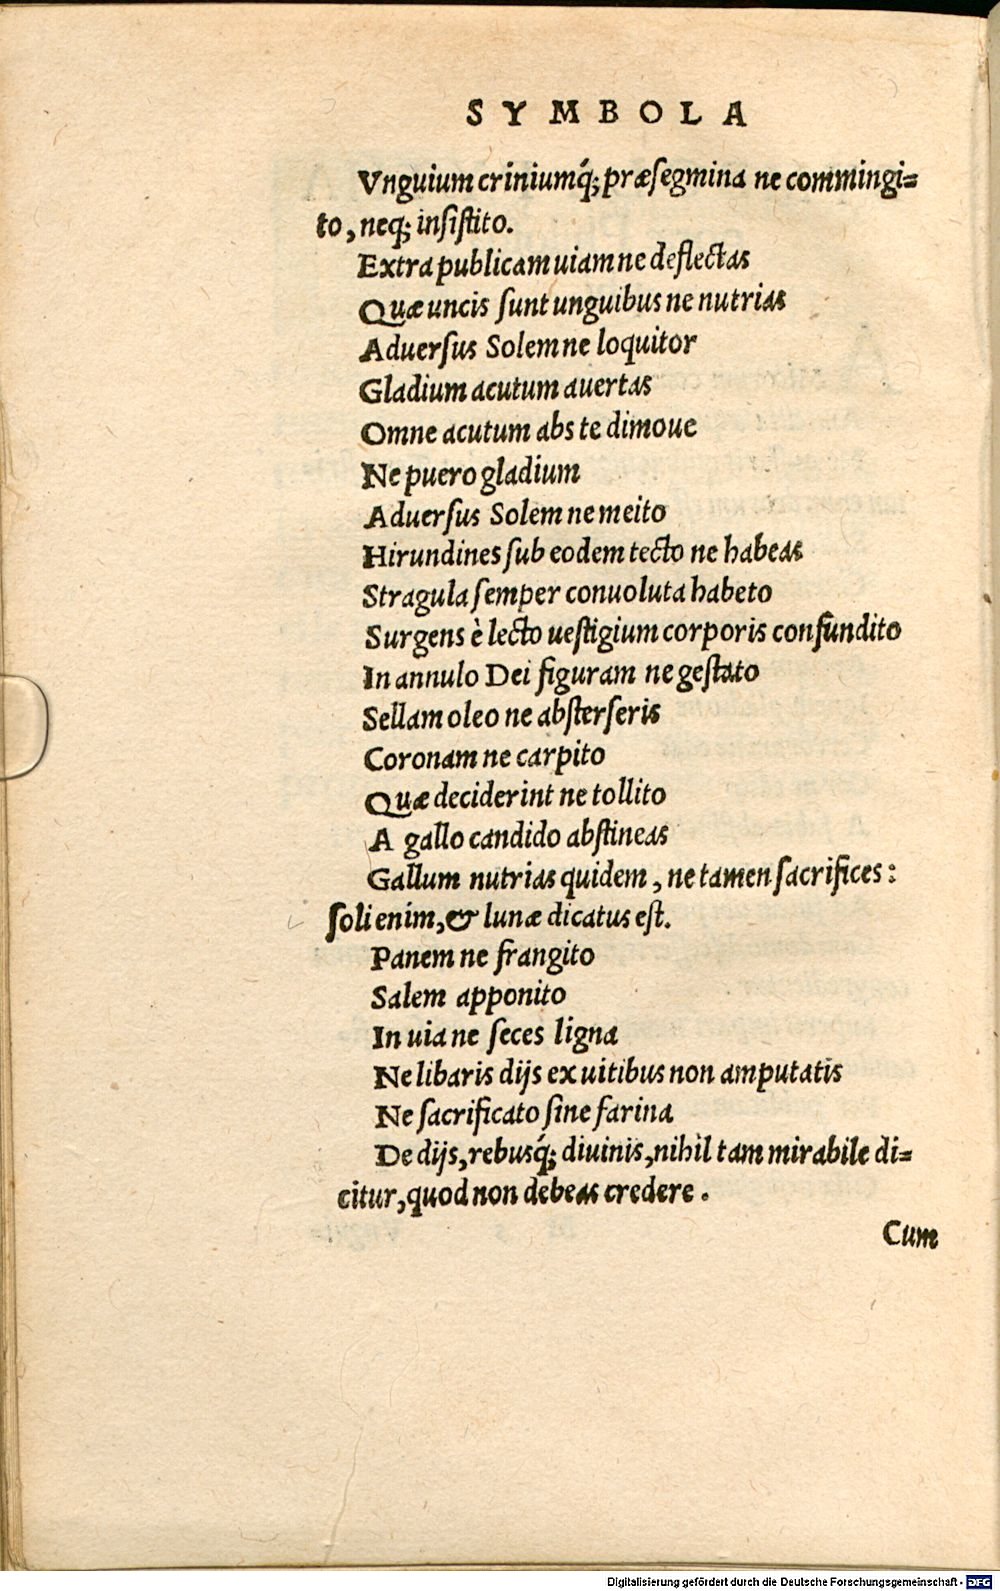 SYMBOLA
Vnguium criniumq́; præsegmina ne commingi=
to, neq; insistito.
Extra publicam uiam ne deflectas
Quæ uncis sunt unguibus ne nutrias
Aduersus Solem ne loquitor
Gladium acutum auertas
Omne acutum abs te dimoue
Ne puero gladium
Aduersus Solem ne meito
Hirundines sub eodem tecto ne habeas
Stragula semper conuoluta habeto
Surgens è lecto uestigium corporis confundito
In annulo Dei figuram ne gestato
Sellam oleo ne absterseris
Coronam ne carpito
Quæ deciderint ne tollito
A gallo candido abstineas
Gallum nutrias quidem, ne tamen sacrifices:
soli enim, & lunæ dicatus est.
Panem ne frangito
Salem apponito
In uia ne seces ligna
Ne libaris dijs ex uitibus non amputatis
Ne sacrificato sine farina
De dijs, rebusq́; diuinis, nihil tam mirabile di=
citur, quod non debeas credere.
Cum
Digitalisierung gefördert durch die Deutsche Forschungsgemeinschaft - DFG